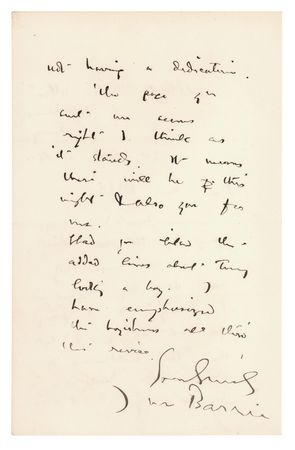 not having a dedication.
The page you
sent me seems
right I think as
it stands. It means
there will be this
night & also you for
me.
Glad you liked the
added lines about Tommy
being a boy. I
have emphasized
the boyishness all thro'
this revise.
J M Barrie